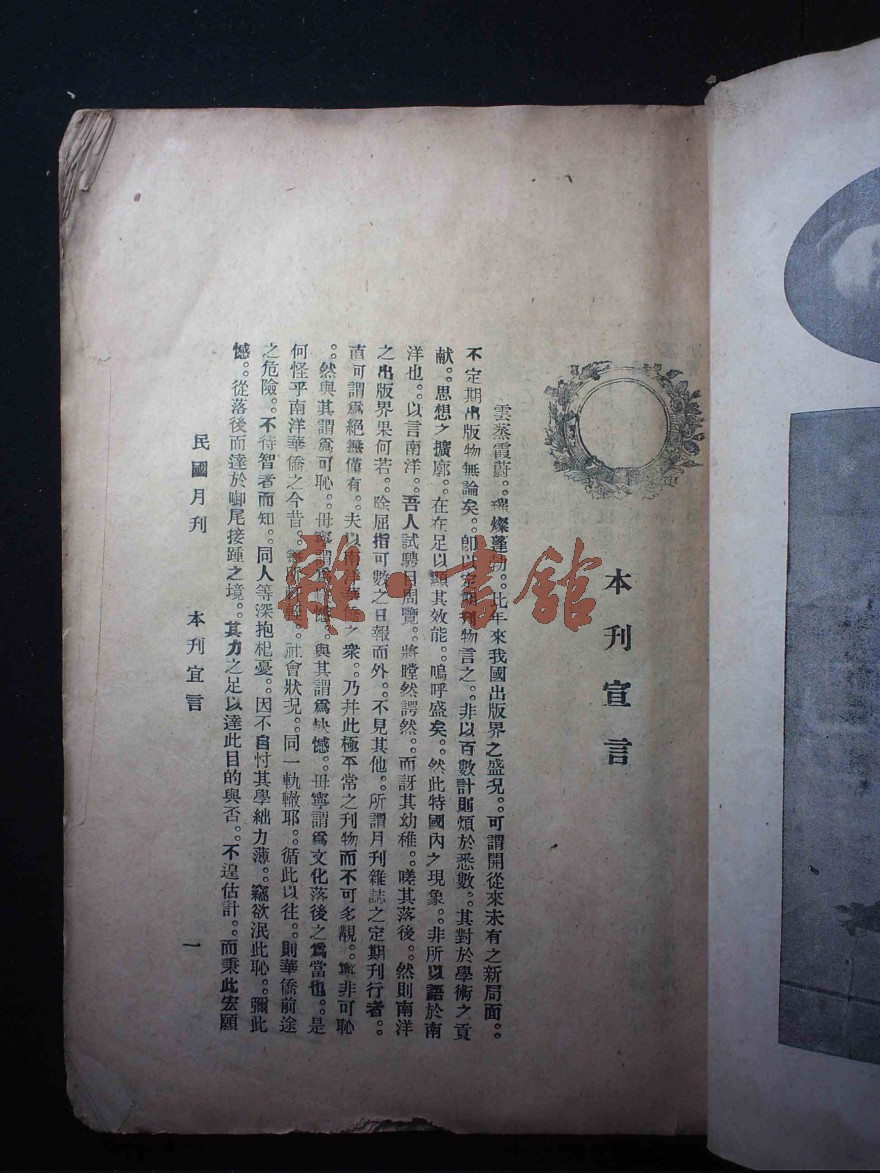 本刊宣言
雲蒸霞蔚。。璀燦蓬勃。。比年來我國出版界之盛況。。可謂開從來未有之新局面。。
不定期出版物無論矣。。卽以定期刊物言之。。非以百數計則煩於悉數。。其對於學術之貢
献。。思想之擴廓。。在在足以顯其效能。。嗚呼盛矣。。然此特國內之現象。。非所以語於南
洋也。。以言南洋。。吾人試騁目周覽。。將瞠然諤然。。而訝其幼稚。。嗟其落後。。然則南洋
之出版界果何若。。除屈指可數之日報而外。。不見其他。。所謂月刊雜誌之定期刊行者。。
直可謂爲絕無僅有。。夫以南洋華僑之衆。。乃并此極平常之刊物而不可多覯。。寧非可恥
。。然與其謂爲可恥。。毋寧謂爲缺憾。。與其謂爲缺憾。。毋寧謂爲文化落後之爲當也。。是
何怪乎南洋華僑之今昔。。社會狀况。。同一軌轍耶。。循此以往。。則華僑前途
之危險。。不待智者而知。。同人等深抱杞憂。。因不自忖其學絀力薄。。竊欲泯此恥。。彌此
憾。。從落後而達於啣尾接踵之境。。其力之足以達此目的與否。。不遑估計。。而秉此宏願
民國月刊 本刊宣言 一
雜·書館